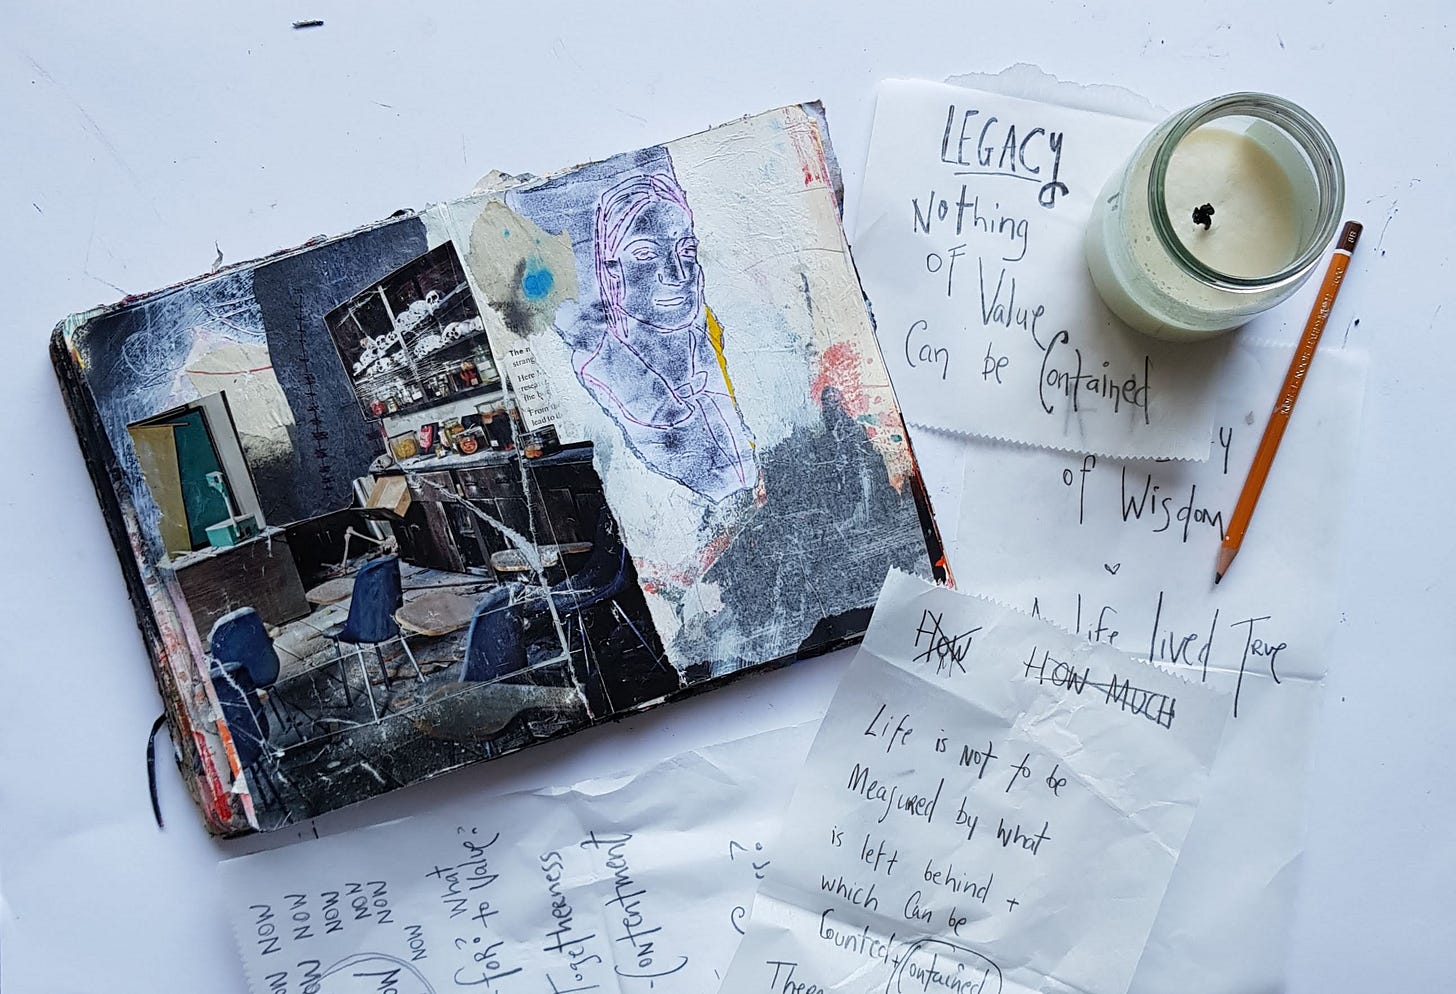 LEGACY
Nothing
of Value
Can be Contained
of Wisdom
life lived True
HOW HOW MUCH
Life is not to be
Measured by what
is left behind +
which Can be
Counted + Contained
The n
strang
Here
resea
the b
From th
lead to
NOW NOW
NOW NOW
NOW
NOW
NOW
NOW
for? What
to Value?
Togetherness
-Contentment
8B
KOH-I-NOOR HARDTMUTH